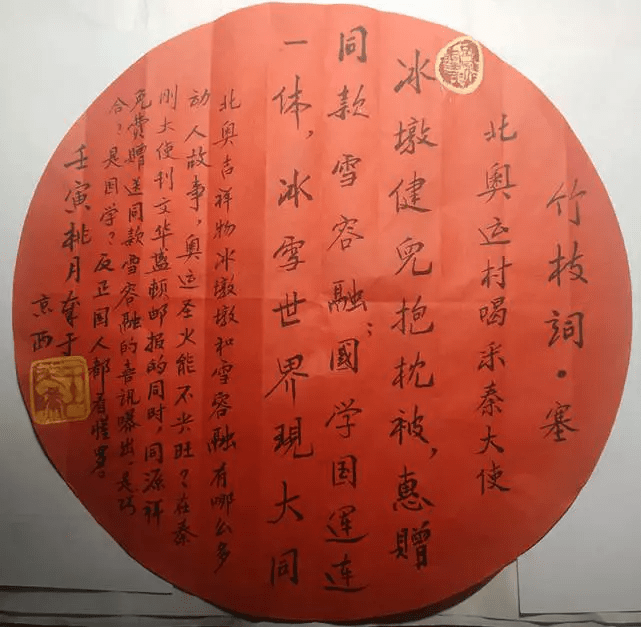 竹枝詞·塞
北奥运村喝采秦大使
冰墩健兒抱枕被,惠贈
同款雪容融;國学国運连
一体,冰雪世界現大同
北奥吉祥物冰墩墩和雪容融有哪么多
动人故事,奥运圣火能不兴旺?在秦
刚大使刊文华盛顿邮报的同时,同源祥
免費贈送同款雪容融的喜讯曝出。是巧
合?是国学?反正国人都看懂
壬寅桃月
京西